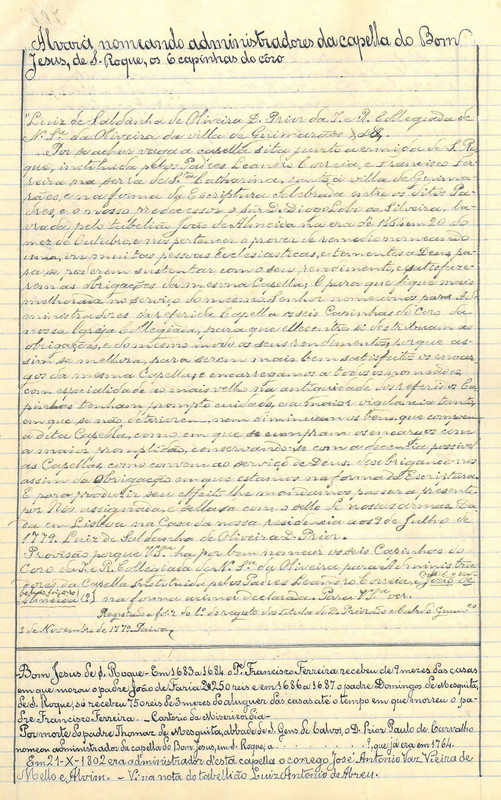 Alvará, nomeando administradores da capella do Bom
Jesus, de S. Roque, os 6 capinhas do côro
"Luiz de Saldanha de Oliveira D. Prior da I. e R. Collegiada de
N. Sr.ª da Oliveira da villa de Guimarães &
Por se achar vaga a capella sita junto a ermida de S. Ro
que, instituida pelos Padres Leandro Correia, e Francisco Fer
reira na serra de St.ª Catharina, junto á villa de Guima
rães, e na forma da Escriptura celebrada entre os ditos Pa
dres, e o nosso predecessor o Snr. D. Diogo Lobo da Silveira, la
vrada pelo tabellião João de Almeida na era de 1661 em 20 do
mez de Outubro, e nos pertencer o prover de remedio nomeando
uma, ou muitas pessoas Ecclesiasticas, e tementes a Deus, pa
ra se poderem sustentar com o seu rendimento, e satisfaze
rem as obrigações da mesma Capella; E para que fique mais
melhorada no serviço do mesmo Senhor nomeamos para Ad
ministradores da referida Capella os seis Capinhas do Côro da
nossa Igreja Collegiada, para que elles entre si destribuam as
obrigações, e do mesmo modo os seus rendimentos, porque as
sim se melhora, para serem mais bem satisfeitos os encar
gos da mesma Capella, e encarregamos a todos os nomeados,
com especialidade ao mais velho na antiguidade dos referidos Ca
pinhas tenham prompto cuidado, e a maior vigilancia tanto
em que se não deteriorem, nem diminuam os bens, que compoem
a dita Capella, como em que se cumpram os encargos com
a maior promptidão, conservando-se com a decencia possivel
as Capellas, como convem ao serviço de Deus, desobrigando-nos
assim da obrigação em que estamos na forma da Escriptura.
E para produzir seu effeito lhe mandamos passar a presente
por Nós assignada, e sellada com o sello de nossas armas. Da
da em Lisboa na Casa da nossa residencia aos 9 de Julho de
1779. Luiz de Saldanha de Oliveira D. Prior.
Provisão porque V. S.ª ha por bem nomear os seis Capinhas do
Coro da I. e R. Collegiada de N. Sr.ª da Oliveira para Administra
dores da Capella Instituida pelos Padres Leandro Correia, e João de
Almeida (?) na forma acima declarada. Para V. S.ª ver.
Registado a fl. do L.º do registo dos titulos do D. Priorado e Cabido Guim.es
3 de Novembro de 1779. Paiva
Bom Jesus de S. Roque - Em 1683 a 1684 o P.e Francisco Ferreira recebeu de 9 mezes das casas
em que morou o padre João de Faria 2$250 reis e em 1686 a 1687 o padre Domingos de Mesquita,
de S. Roque, só recebeu 750 reis de 3 mezes do aluguer das casas até o tempo em que morreu o pa
dre Francisco Ferreira. - Cartorio da Misericordia -
Por morte do padre Thomaz de Mesquita, abbade de S. Gens de Calvos, o D. Prior Paulo de Carvalho
nomeou administrador da capella do Bom Jesus, em S. Roque, a . . . . . ?, que já era em 1764.
Em 21-X-1802 era administrador desta capella o conego José Antonio Vaz Vieira de
Mello e Alvim. - Vi na nota do tabellião Luiz Antonio de Abreu.